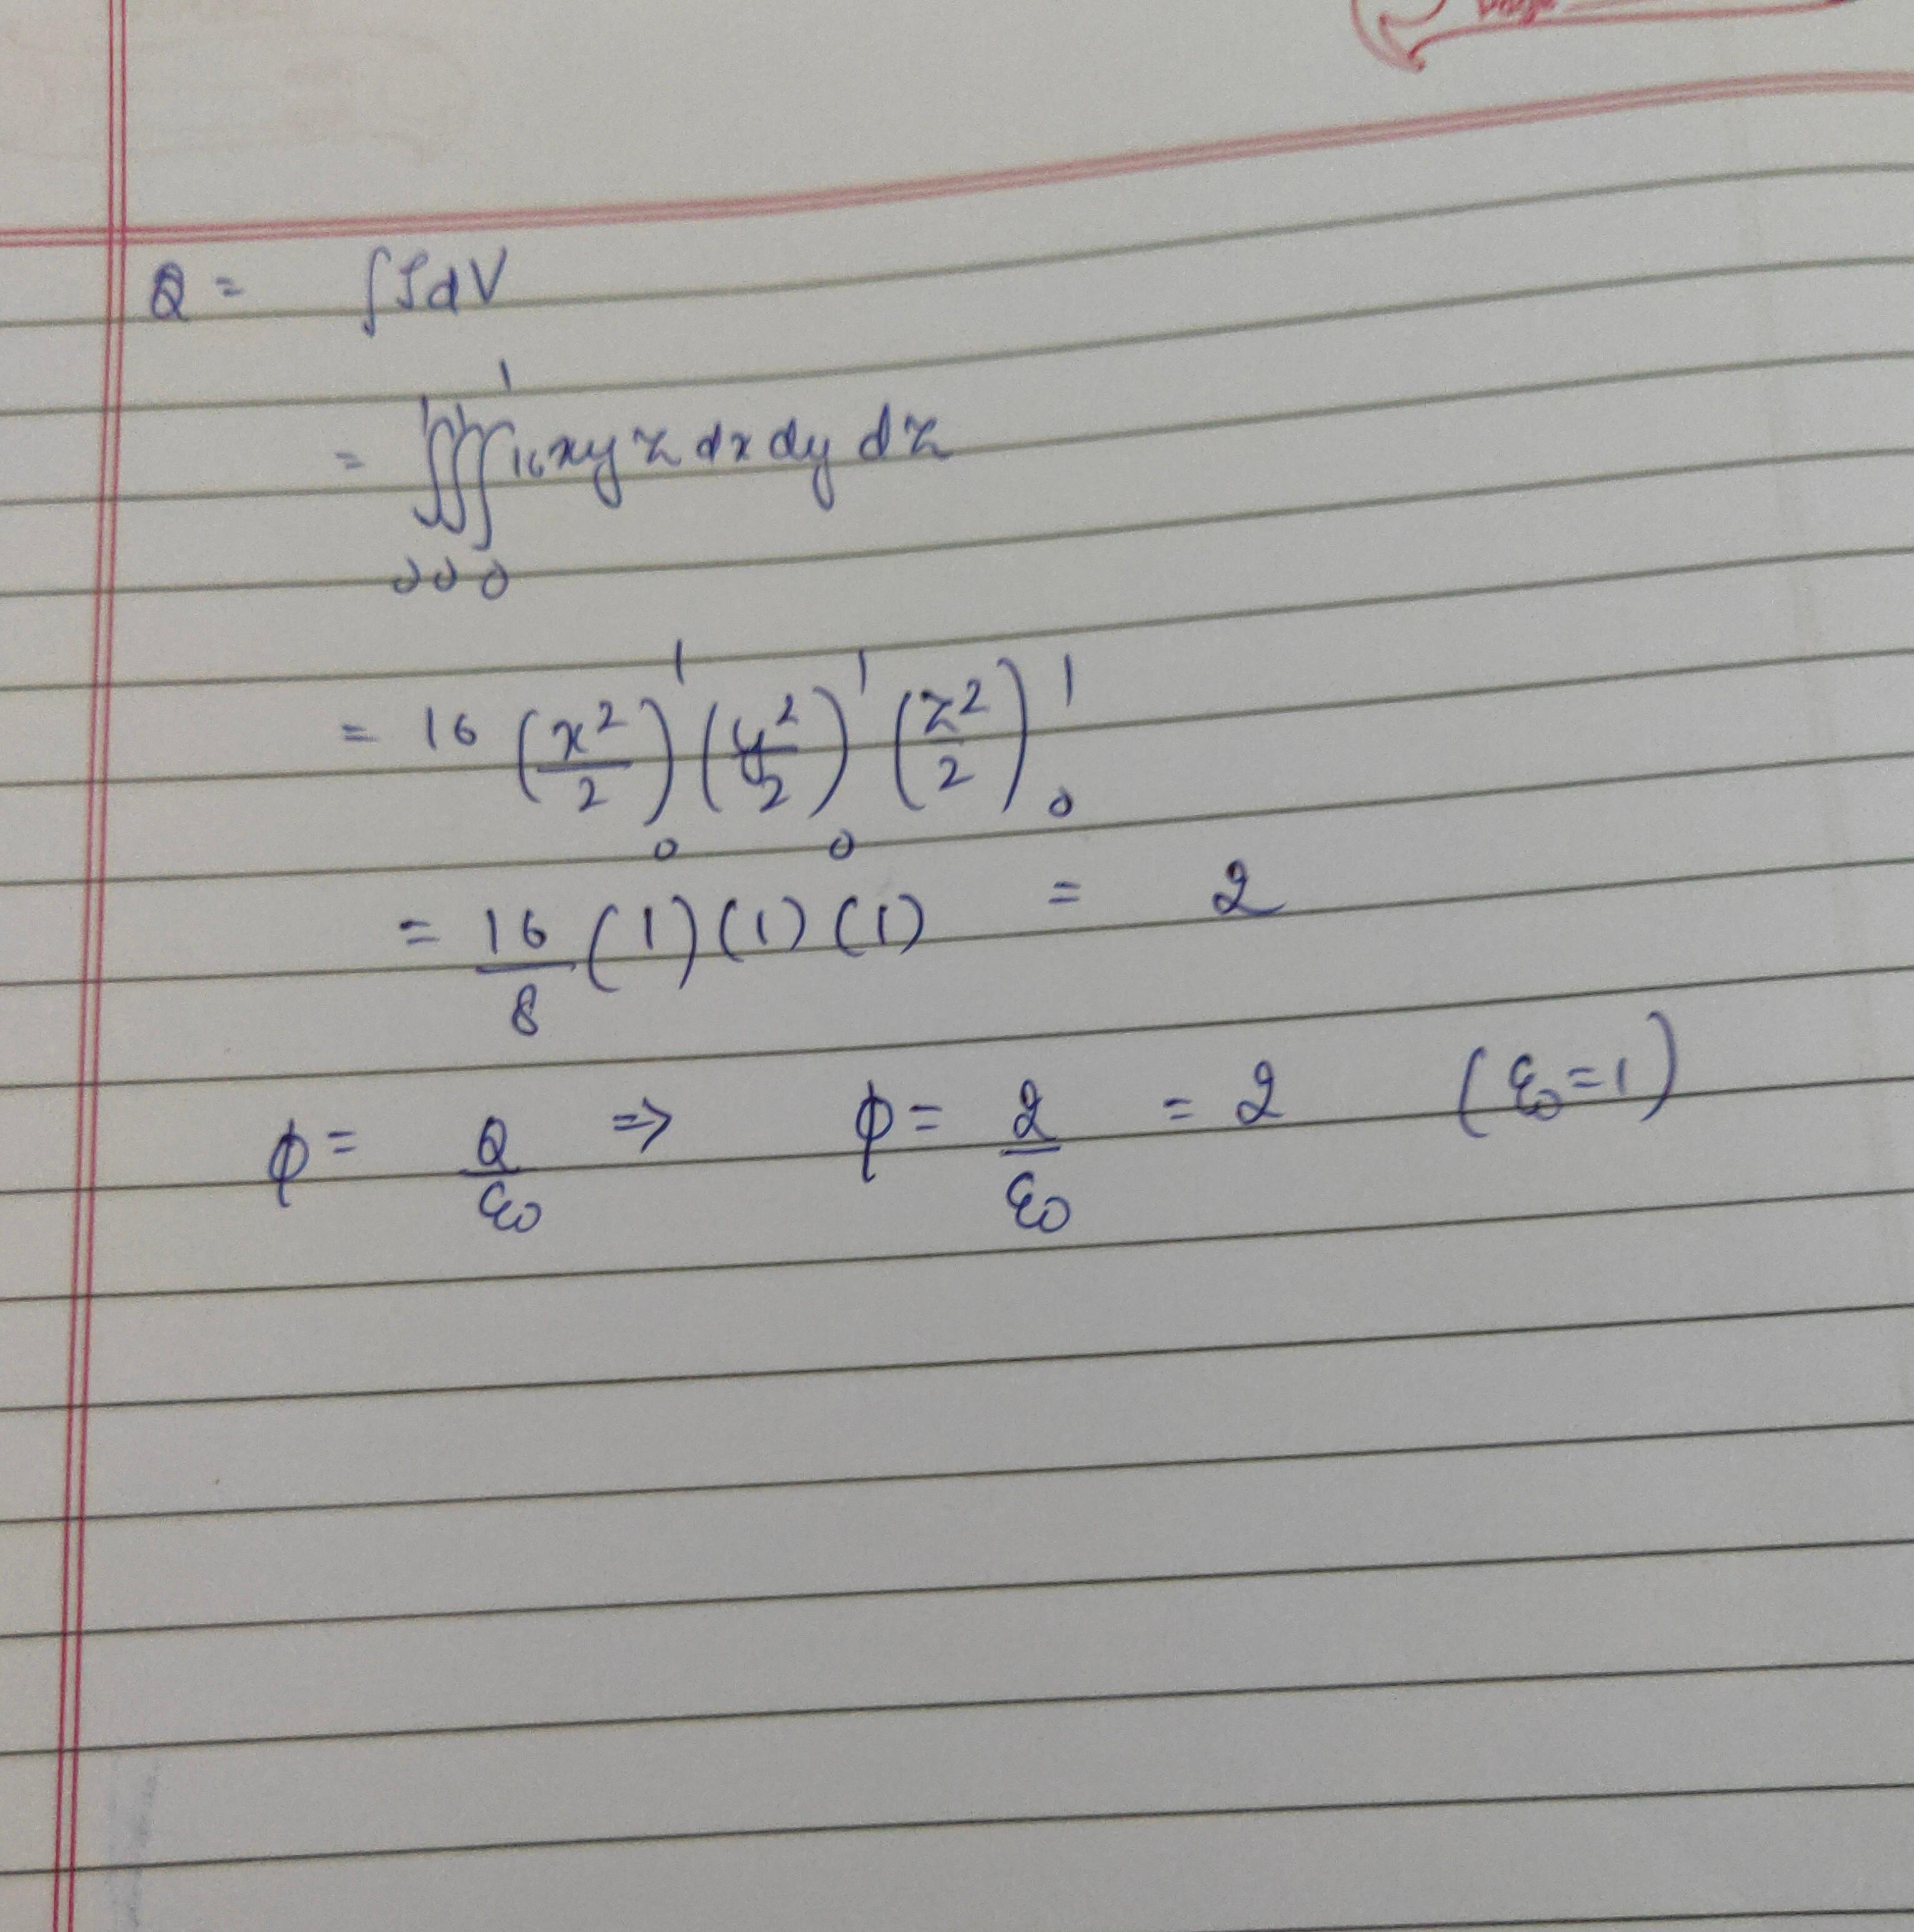 Q = ∫ρdV
= ∫₀¹∫₀¹∫₀¹ 16xyz dx dy dz
= 16 (x²/2)₀¹ (y²/2)₀¹ (z²/2)₀¹
= 16/8 (1)(1)(1) = 2
φ = Q/ε₀ ⇒ φ = 2/ε₀ = 2 (ε₀=1)